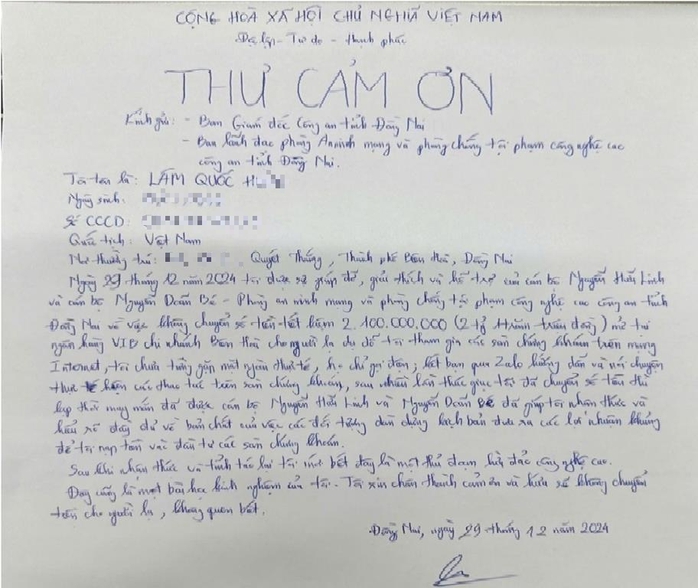 CỘNG HOÀ XÃ HỘI CHỦ NGHĨA VIỆT NAM
Độc lập - Tự do - Hạnh phúc
THƯ CẢM ƠN
Kính gửi: - Ban Giám đốc Công an tỉnh Đồng Nai
- Ban lãnh đạo phòng An ninh mạng và phòng chống tội phạm công nghệ cao
công an tỉnh Đồng Nai.
Tôi tên là: LÂM QUỐC
Ngày sinh:
Số CCCD:
Quốc tịch: Việt Nam
Nơi thường trú: Quyết Thắng, Thành phố Biên Hoà, Đồng Nai
Ngày 29 tháng 12 năm 2024 tôi được sự giúp đỡ, giải thích và hỗ trợ của cán bộ Nguyễn Hữu Linh
và cán bộ Nguyễn Doãn Bé - Phòng an ninh mạng và phòng chống tội phạm công nghệ cao công an tỉnh
Đồng Nai về việc không chuyển số tiền tiết kiệm 2.100.000.000 (2 tỷ trăm triệu đồng) mở tại
ngân hàng VIB chi nhánh Biên Hoà cho người lạ dụ để tôi tham gia các sàn chứng khoán trên mạng
Internet, tôi chưa từng gặp mặt ngoài thực tế, họ chỉ gọi điện, kết bạn qua Zalo hướng dẫn và nói chuyện
thực hiện các thao tác trên sàn chứng khoán, sau nhiều lần thúc giục tôi đã chuyển số tiền thì
kịp thời may mắn đã được cán bộ Nguyễn Hữu Linh và Nguyễn Doãn Bé đã giúp tôi nhận thức và
hiểu rõ đầy đủ về bản chất của việc các đối tượng dàn dựng kịch bản đưa ra các lợi nhuận khủng
để tôi nạp tiền vào đầu tư các sàn chứng khoán.
Sau khi nhận thức và tỉnh táo lại tôi mới biết đây là một thủ đoạn lừa đảo công nghệ cao.
Đây cũng là một bài học kinh nghiệm của tôi. Tôi xin chân thành cảm ơn và hứa sẽ không chuyển
tiền cho người lạ, không quen biết.
Đồng Nai, ngày 29 tháng 12 năm 2024